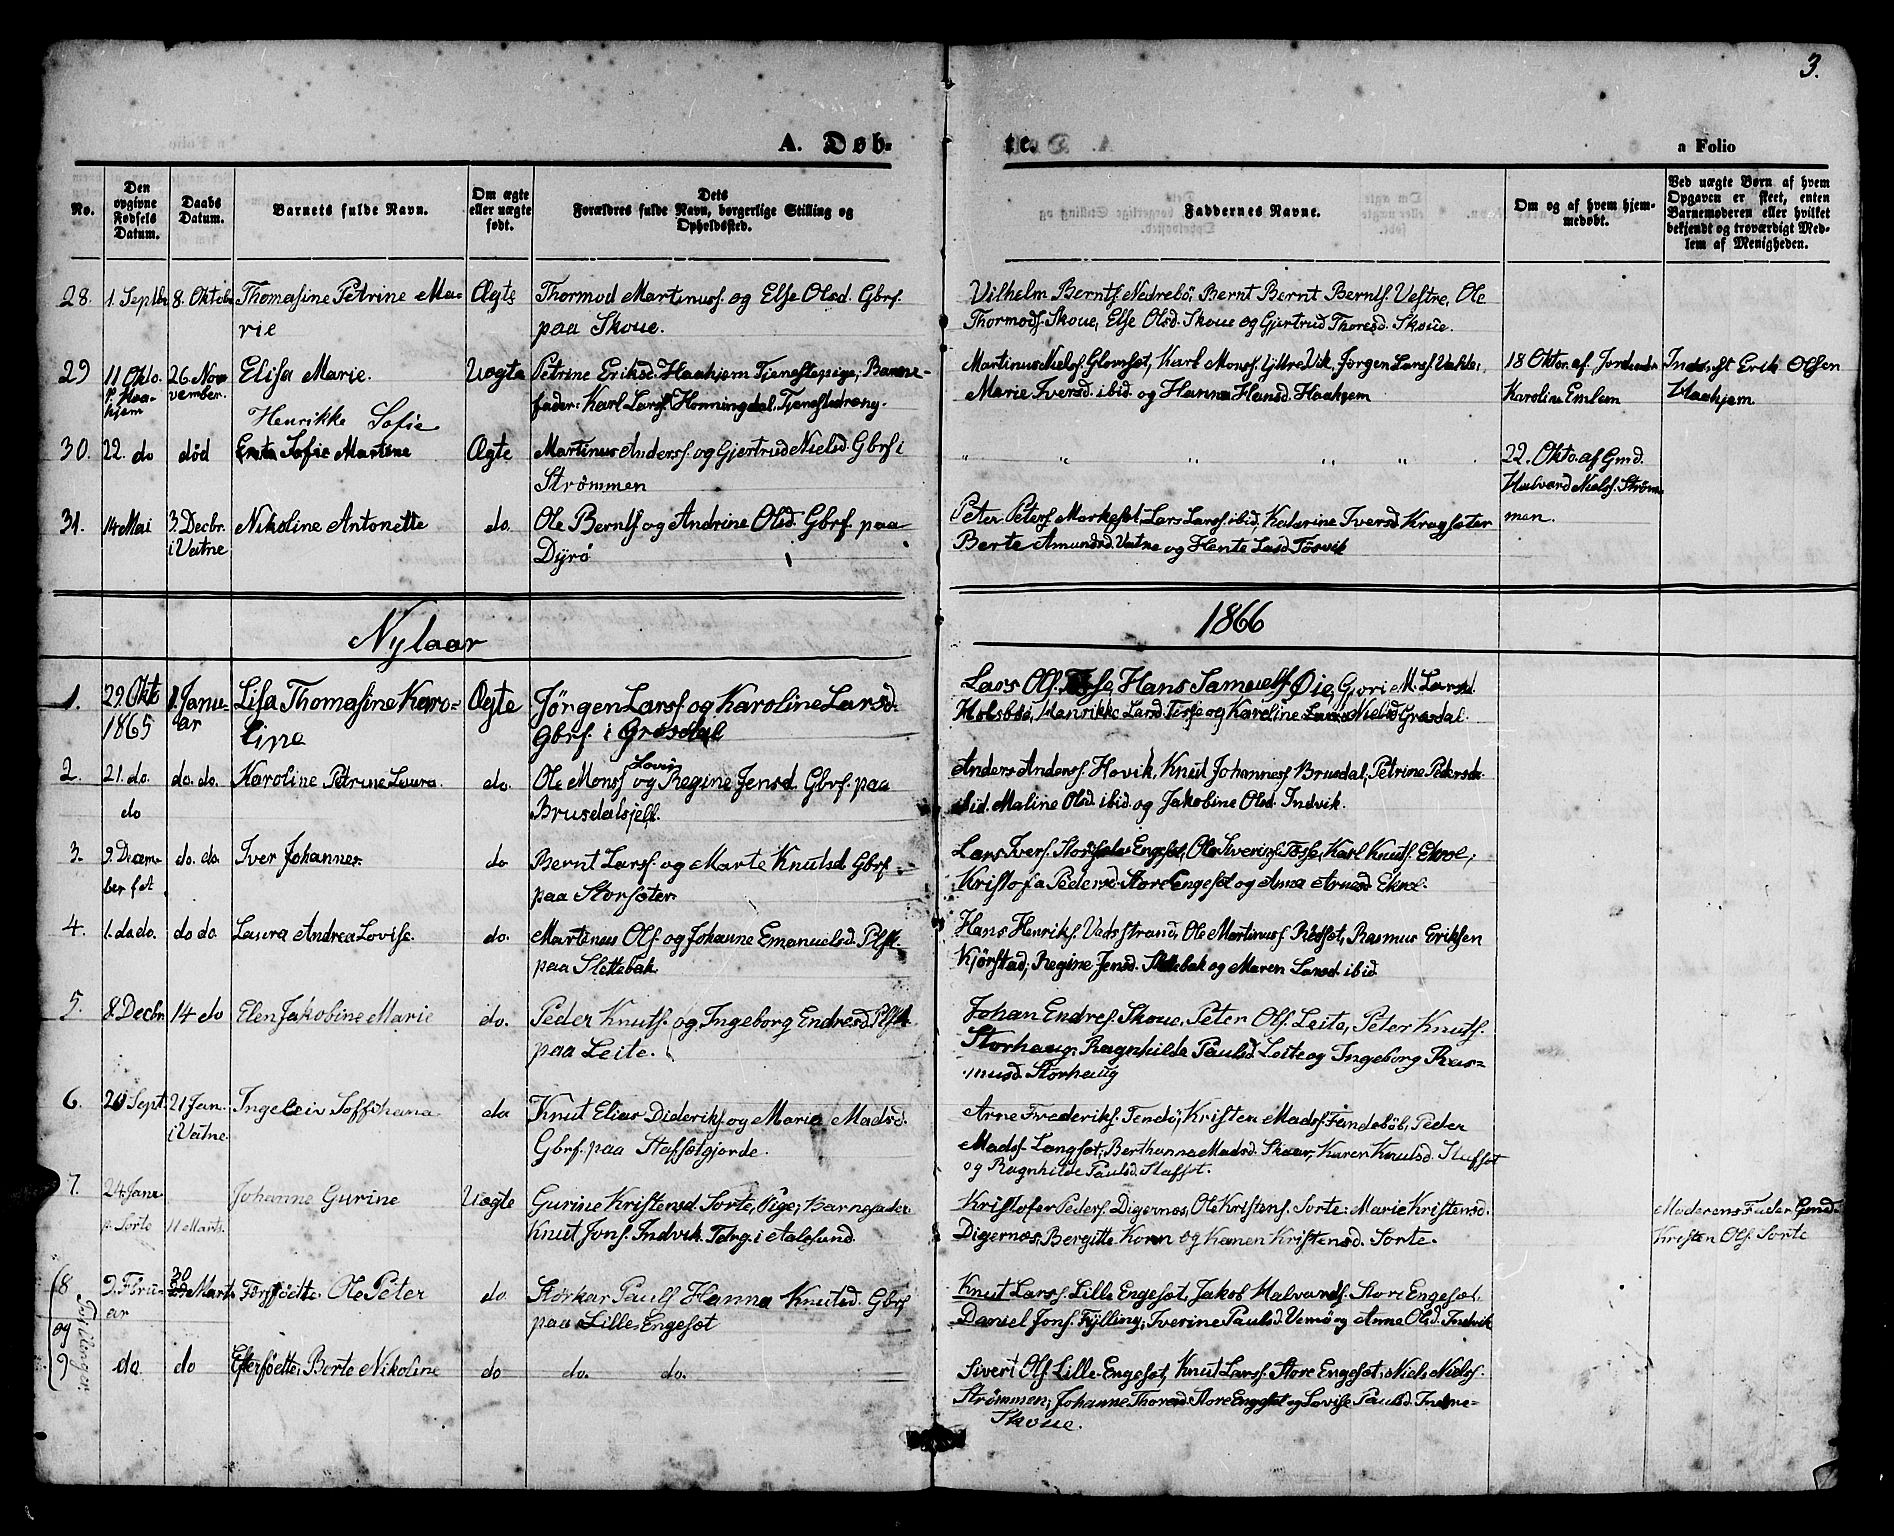 3.
A. Døb-
te.
a Folio
No.
Den
opgivne
Fødsels
Datum.
Daabs
Datum.
Barnets fulde Navn.
Om ægte
eller uægte
født.
Dets
Forældres fulde Navn, borgerlige Stilling og
Opholdssted.
Faddernes Navne.
Om og af hvem hjem-
medøbt.
Ved uægte Børn af hvem
Opgaven er skeet, enten
Barnemoderen eller hvilket
bekjendt og troværdigt Med-
lem af Menigheden.
28. 1. Septbr 8. Oktobr Thomasine Petrine Ma- Ægte Thormod Martinusf. og Else Olsd. Gbrf.
rie paa Skoue.
Vilhelm Berntf. Nedrebö, Bernt Bernt Berntf. Vestre, Ole
Thormodf. Skoue, Else Olsd. Skoue og Gjertrud Thoresd. Skoue.
29 11 Okto. 26 Nov Elisa Marie. Uægte Petrine Eriksd. Haahjem Tjenestepige, Barne-
p. Haa- vember. fader: Karl Larsf. Honningdal, Tjenestedreng.
hjem
Martinus Nielsf. Glomsæt, Karl Monsf. Yttre Vik, Jørgen Larsf.
Marie Iversd. ibid. og Hanna Hansd. Haahjem
18 Oktor. af Jordemdr
Karoline Emlem
Inderst Erik Olsen
Haahjem
Henrikke Sofie
30. 22. do død Sofie Martine Ægte Martinus Andersf. og Gjertrud Nielsd. Gbrf. i
Strømmen
" " " " " "
22. Okto. af Gmd.
Halvard Nielsf. Strøm-
men.
31. 14 Mai 3. Decbr. Nikoline Antonette do. Ole Berntsf. og Andrine Olsd. Gbrf. paa
i Vatne Dyrø
Peter Petersf. Markeset, Lars Larsf. ibid, Katarine Iversd Kragsæter
Berte Amundsd. Vatne og Hente Lasd Tøsvik
Nylaar
1866
1. 29. Okto 1. Janu- Lisa Thomasine Karo- Ægte Jørgen Larsf. og Karoline Larsd.
1865 ar line Gbrf. i Grøsdal
Lars Olf. Hans Samuelf. Øie, Gjori M. Larsd.
Holsbøe, Henrikke Larsd Tisse og Karoline Nielsd Grøsdal.
2. 21. do. do. do. Karoline Petrine Laura. do. Ole Monsf og Regine Jensd. Gbrf. paa
do Brusdalsjell.
Anders Andersf. Hovik, Knut Johannesf Brusdal, Petrine Petersdr.
ibid. Maline Olsd. ibid. og Jakobine Olsd. Indvik.
3. 9. Decem- do. do. Iver Johannes do Bernt Larsf. og Marte Knutsd Gbrf
ber paa Storsæter.
Lars Iversf. Engeset, Ole Tøsse, Karl Knutsf.
Kristofa Pedersd. Store Engeset og Anna Arnesd
4. 1. do do. do do. Laura Andrea Lovise. do. Martinus Olf. og Johanne Emanuelsd. Plf.
paa Slettebak.
Hans Henriksf. Vadstrand, Ole Martinusf. Ræset, Rasmus Eriksen
Kjörstad, Regine Jensd. Slettebak og Maren Larsd. ibid
5. 8. Decbr. 14 do Elen Jakobine Marie do. Peder Knutsf. og Ingeborg Endresd. Plf.
paa Leite.
Johan Endresf. Skoue, Peter Olf. Leite, Peter Knutsf.
Storhaug, Ragnhilde Paulsd. Leite og Ingeborg Ras-
musd. Storhaug
6. 20 Sept. 21 Jan. Ingeleiv Soffihana do Knut Elias Dideriksf. og Maria Madsd.
i Vatne. Gbrf. paa Staffsetgjerde.
Arne Frederiksf. Tendö, Kristen Madsf. Peder
Madsf. Langset, Berthanna Madsd. Skaar, Karen Knutsd. Staffset
og Ragnhilde Paulsd. Staffset.
7. 24. Janr. Johanne Gurine Uægte Gurine Kristensd. Sorte, Pige; Barnefader
p. Sorte 11 Marts. Knut Jonsf. Indvik. Tdrg. i Aalesund
Kristofer Pedersf. Digernæs, Ole Kristensf. Sorte. Marie Kristensd.
Digernæs, Bergitte Korsn og Karen Kristensd. Sorte.
Moderens Fader Gmd.
Kristen Olf. Sorte
8 9. Febru- 30 Marts Førsfødte: Ole Peter do. Størkar Paulsf Hanna Knutsd. Gbrf
ar paa Lille Engeset
Knut Larsf. Lille Engeset, Jakob Halvardsf. Store Engeset.
Daniel Jonsf. Fylling, Iverine Paulsd. Uemö og Anna Olsd. Indvik
og
Tvillinger
9 do. do Efterfødte: Berte Nikoline do do. do.
Sivert Olf. Lille Engeset, Knut Larsf. Store Engeset, Niels Nielsf.
Strømmen, Johanne Thoresd. Store Engeset og Lovise Paulsd. Indre-
Skoue.